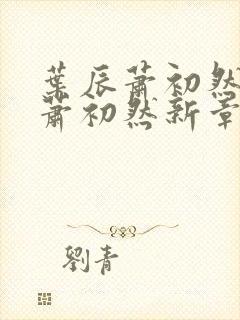 葉辰蕭初然
蕭初然新章
劉青